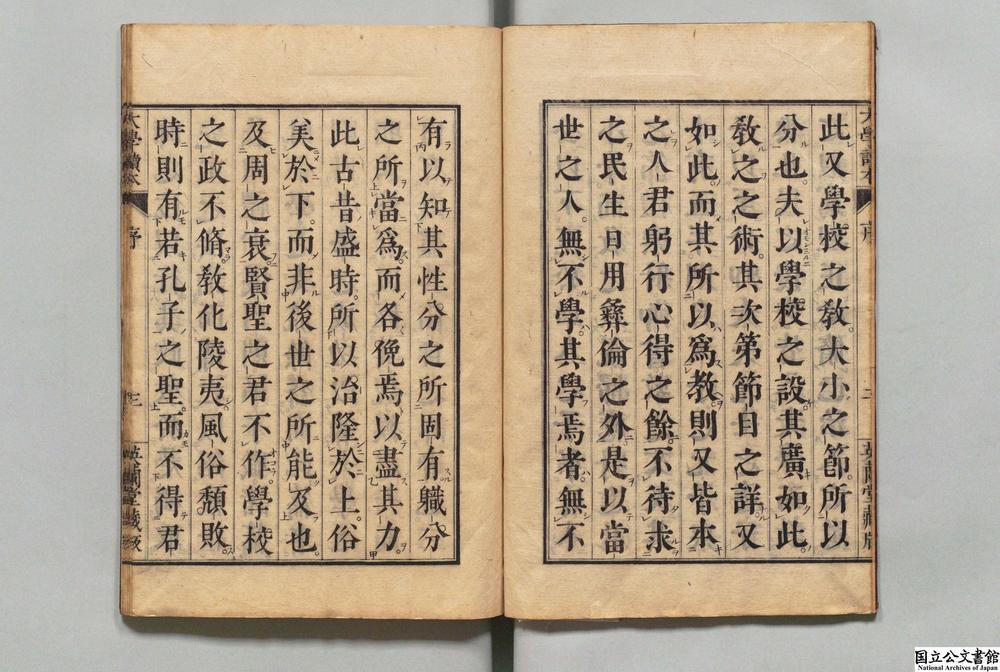 此又學校之教大小之節所以
分也夫以學校之設其廣如此
教之之術其次第節目之詳又
如此而其所以爲教則又皆本
之人君躬行心得之餘不待求
之民生日用彝倫之外是以當
世之人無不學其學焉者無不
有以知其性分之所固有職分
之所當爲而各俛焉以盡其力
此古昔盛時所以治隆於上俗
美於下而非後世之所能及也
及周之衰賢聖之君不作學校
之政不脩教化陵夷風俗頽敗
時則有若孔子之聖而不得君
序
三
国立公文書館
National Archives of Japan